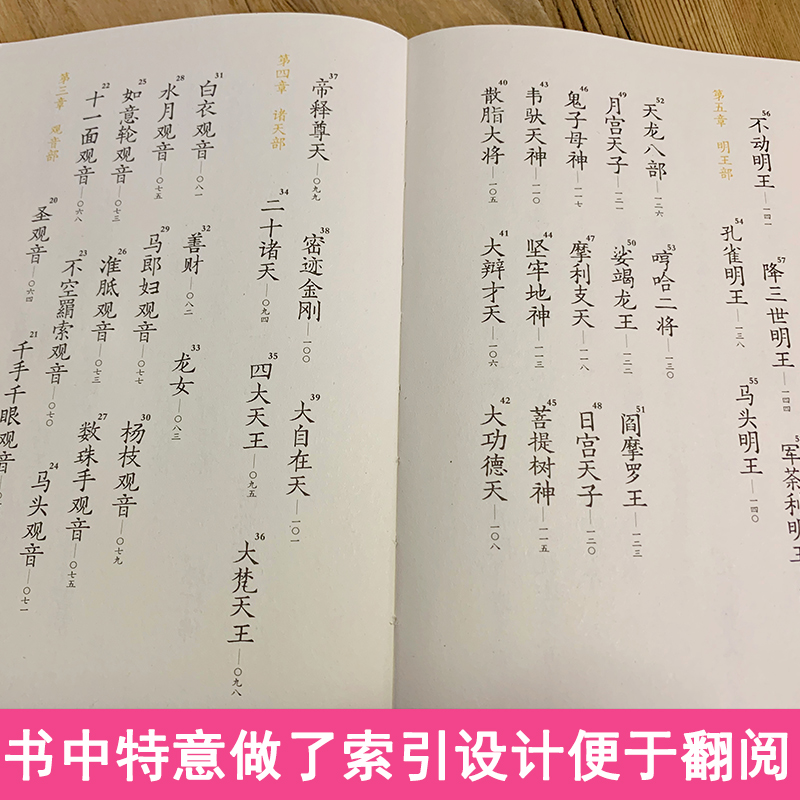 第三章 观音部
20 圣观音——〇六四
21 千手千眼观音
22 十一面观音——〇六八
23 不空羂索观音——〇七〇
24 马头观音——〇七一
25 如意轮观音——〇七三
26 准胝观音——〇七三
27 数珠手观音——〇七五
28 水月观音——〇七五
29 马郎妇观音——〇七七
30 杨枝观音——〇七九
31 白衣观音——〇八一
32 善财——〇八二
33 龙女——〇八三
第四章 诸天部
34 二十诸天——〇九四
35 四大天王——〇九五
36 大梵天王——〇九八
37 帝释尊天——〇九九
38 密迹金刚——一〇〇
39 大自在天——一〇一
40 散脂大将——一〇五
41 大辩才天——一〇六
42 大功德天——一〇八
43 韦驮天神——一一〇
44 坚牢地神——一一三
45 菩提树神——一一五
46 鬼子母神——一一七
47 摩利支天——一一八
48 日宫天子——一二〇
49 月宫天子——一二一
50 娑竭龙王——一二二
51 阎摩罗王——一二三
52 天龙八部——一二六
53 哼哈二将——一三〇
第五章 明王部
54 孔雀明王——一三八
55 马头明王——一四〇
56 不动明王——一四一
57 降三世明王——一四四
军荼利明王
书中特意做了索引设计便于翻阅